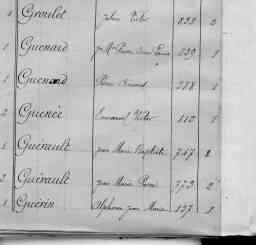 1 Groulet Jules Victor 832 2
1 Guenard Pierre 839 1
1 Guenard Pierre 388 1
2 Guenée Emmanuel Victor 110 1
1 Guérault Jean Marie Baptiste 747 2
2 Guérault Jean Marie Pierre 773 2
1 Guérin Alphonse Jean Marie 137 1